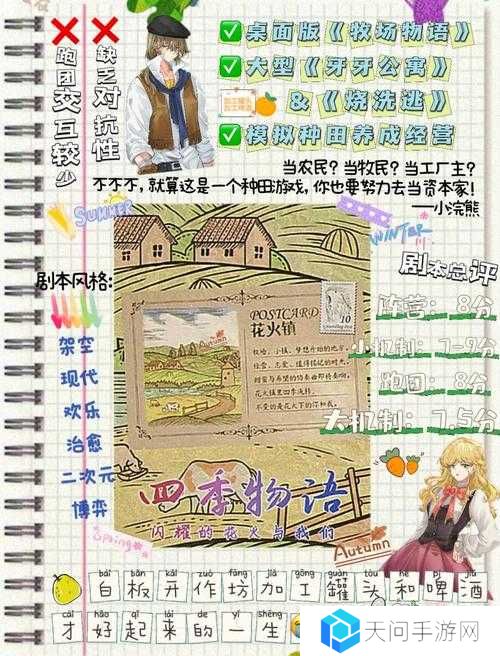 跑团交互较少
缺乏对抗性
桌面版《牧场物语》
大型《牙牙公寓》
&《烧洗逃》
模拟种田养成经营
当农民？当牧民？当工厂主？
不不不，就算这是一个种田游戏，你也要努力去当资本家！
——小浣熊
SUMMER
WINTER
剧本风格：
架空
现代
欢乐
治愈
二次元
博弈
剧本总评
阵营：8分
小机制：7-9分
跑团：8分
大机制：7.5分
POSTCARD
花火镇
10
Autumn
牧场、小镇，梦想开始的地方。
花火镇里四季流转，
四季物语
闪耀的花火与我们
Spring
Autumn
bái bǎn kāi zuó fāng jiā gōng guàn tóu hé pí jiǔ
白板开作坊加工罐头和啤酒
cái hǎo qǐ lái de yì shēng
才好起来的一生
天问手游网